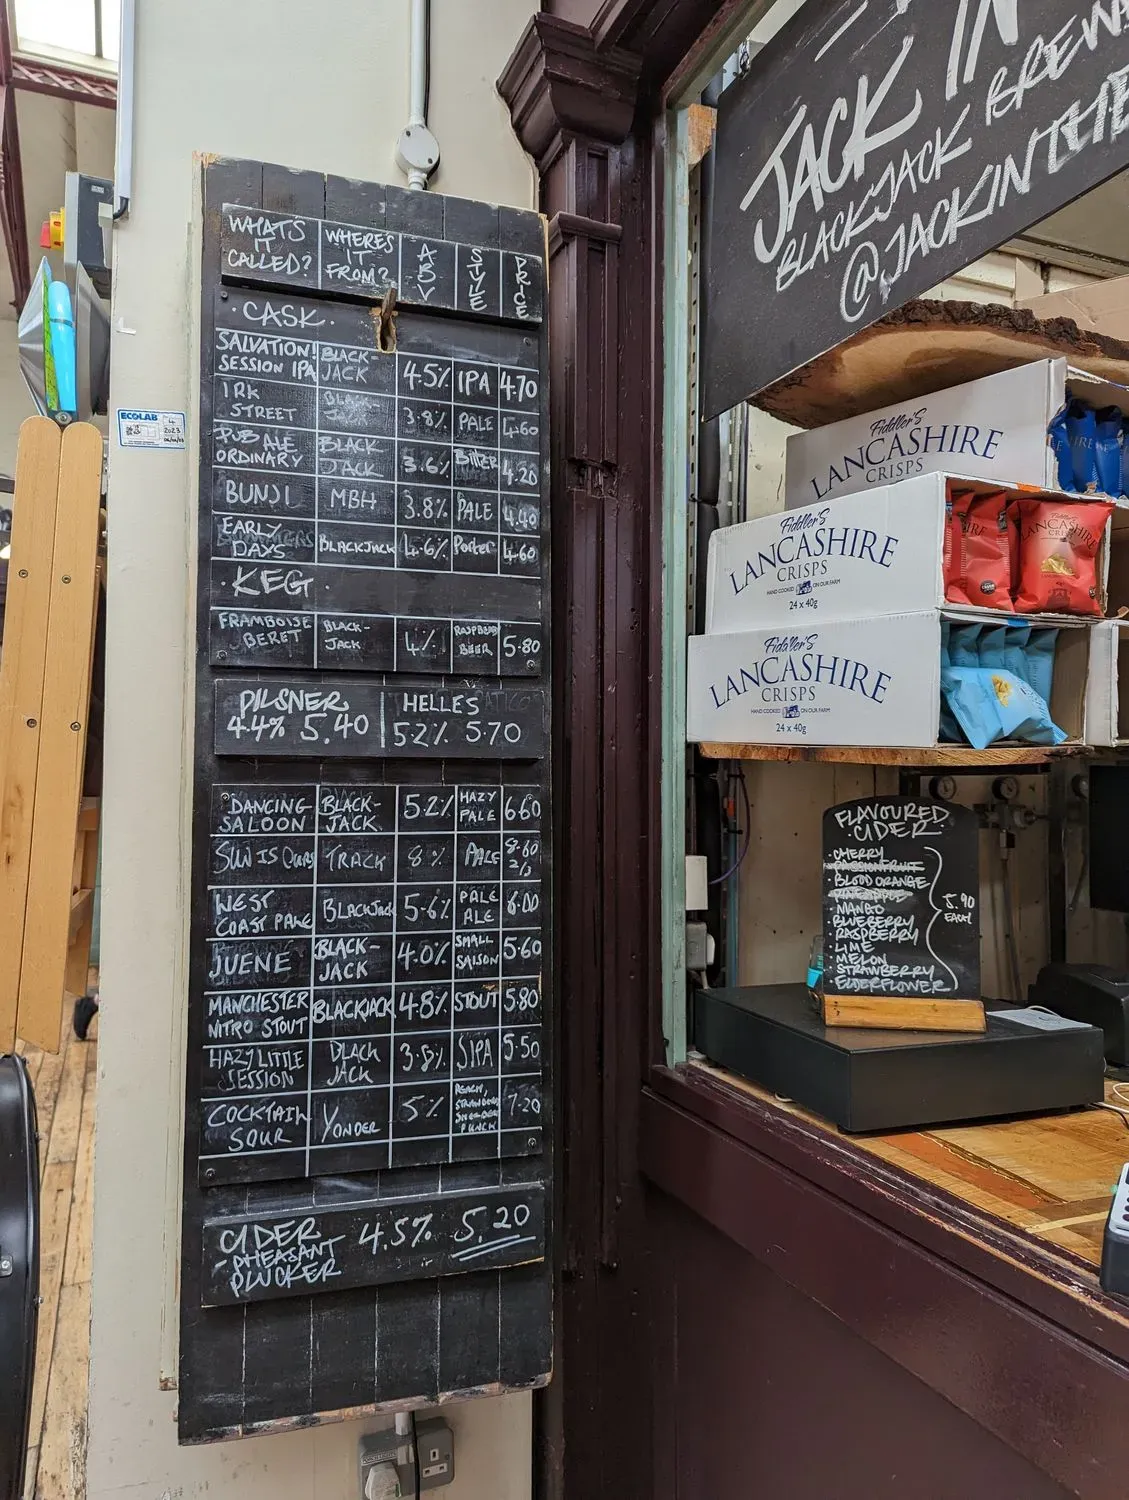 WHAT'S IT CALLED? WHERE'S IT FROM? ABV STYLE PRICE
· CASK ·
SALVATION! SESSION IPA BLACK-JACK 4.5% IPA 4.70
IRK STREET BLACK-JACK 3.8% PALE 4.60
PUB ALE ORDINARY BLACK JACK 3.6% BITTER 4.20
BUNJI MBH 3.8% PALE 4.40
EARLY DAYS BLACKJACK 4.6% PORTER 4.60
· KEG ·
FRAMBOISE BERET BLACK-JACK 4% RASPBERRY BEER 5.80
PILSNER 4.4% 5.40
HELLES 5.2% 5.70
DANCING SALOON BLACK-JACK 5.2% HAZY PALE 6.60
SUN IS OURS TRACK 8% PALE 8.60 2/3
WEST COAST PALE BLACKJACK 5.6% PALE ALE 6.00
JUENE BLACK-JACK 4.0% SMALL SAISON 5.60
MANCHESTER NITRO STOUT BLACKJACK 4.8% STOUT 5.80
HAZY LITTLE SESSION BLACK JACK 3.8% SIPA 5.50
COCKTAIL SOUR YONDER 5% PEACH, PUNCH 7.20
CIDER 4.5% 5.20
- PHEASANT
PLUCKER
ECOLAB
2023
JACK IN
BLACKJACK BREW
@JACKINTHE
Fiddler's
LANCASHIRE
CRISPS
Fiddler's
LANCASHIRE
CRISPS
HAND COOKED ON OUR FARM
24 x 40g
LANCASHIRE
Fiddler's
LANCASHIRE
CRISPS
HAND COOKED ON OUR FARM
24 x 40g
FLAVOURED
· CIDER ·
· CHERRY
PASSIONFRUIT
· BLOOD ORANGE
· MANGO
· BLUEBERRY
· RASPBERRY
· LIME
· MELON
· STRAWBERRY
· ELDERFLOWER
5.90
EACH